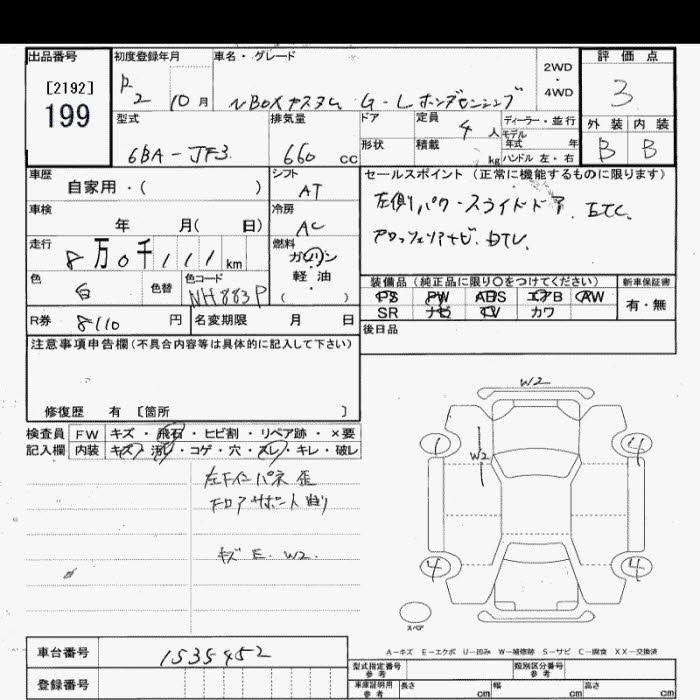 出品番号 初度登録年月 車名・グレード 2WD・4WD 評価点
[2192] 199 R2 10月 N BOX カスタム G-L ホンダセンシング 3
型式 排気量 ドア 定員 ディーラー・並行 外装 内装
6BA-JF3 660 cc 4人 モデル年式 年 B B
形状 積載 kg ハンドル 左・右
車歴 シフト セールスポイント (正常に機能するものに限ります)
自家用・( ) AT 左側パワースライドドア. ETC.
車検 冷房
年 月( 日) AC ナビ. DTV.
走行 燃料
8万0千111km ガソリン・軽・油 ( )
色 色替 色コード 装備品 (純正品に限り〇をつけてください) 新車保証書
白 NH883P PS PW ABS エアB AW 有・無
SR ナビ TV カワ
R券 8110 円 名変期限 月 日 後日品
注意事項申告欄(不具合内容等は具体的に記入して下さい)
修復歴 有 [箇所 ]
検査員 FW キズ・飛石・ヒビ割・リペア跡・×要
記入欄 内装 キズ・汚れ・コゲ・穴・スレ・キレ・破レ
W2
1 4
W2
左Fインパネ 歪
Fロアサポート曲り
キズ E. W2.
4 4
スペア
A-キズ E-エクボ U-凹み W-補修跡 S-サビ C-腐食 XX-交換済
車台番号 1535452
型式指定番号 参考 類別区分番号 参考
登録番号 車庫証明用 参考 長さ cm 幅 cm 高さ cm